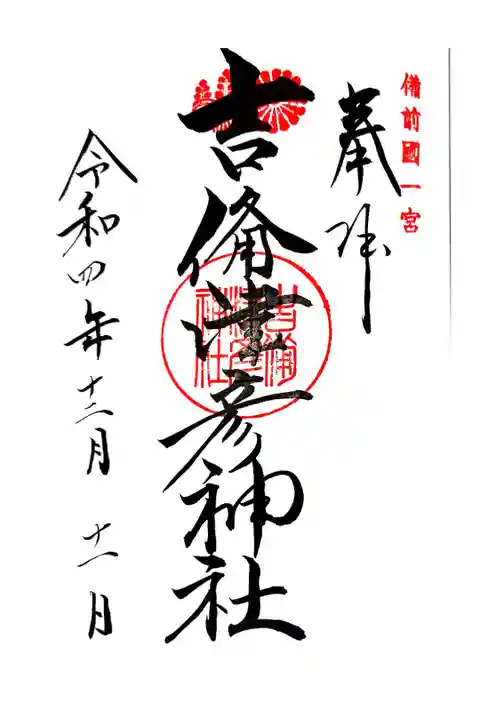 備前國一宮
奉拝
吉備津彦神社
吉備
津彦
神社
令和四年十二月十一日